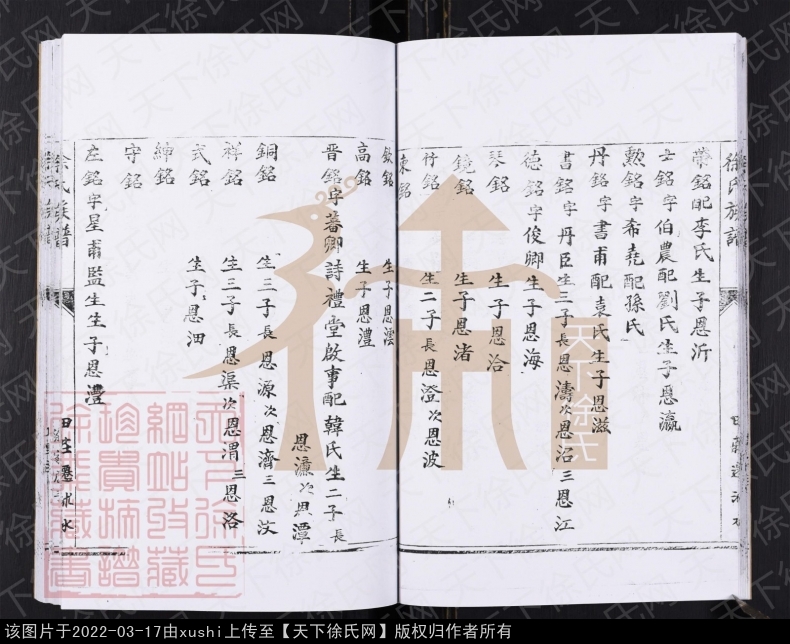 徐氏族譜
榮銘配李氏生子恩沂
士銘字伯農配劉氏生子恩瀛
勲銘字希堯配孫氏
丹銘字書甫配袁氏生子恩滋
書銘字丹臣生三子長恩濤次恩沼三恩江
德銘字俊卿生子恩海
琴銘 生子恩洽
鏡銘 生子恩渚
行銘 生二子長恩澄次恩波
東銘
欽銘 生子恩澐
高銘 生子恩澧
晋銘字蕃卿詩禮堂啟事配韓氏生二子長
恩濂次恩潭
銅銘 生三子長恩源次恩濟三恩汶
祥銘 生三子長恩渠次恩渭三恩洛
式銘 生子恩泗
紳銘
守銘
左銘字星甫監生生子恩灃
徐氏族譜
天下徐氏
天下徐氏网
该图片于2022-03-17由xushi上传至【天下徐氏网】版权归作者所有